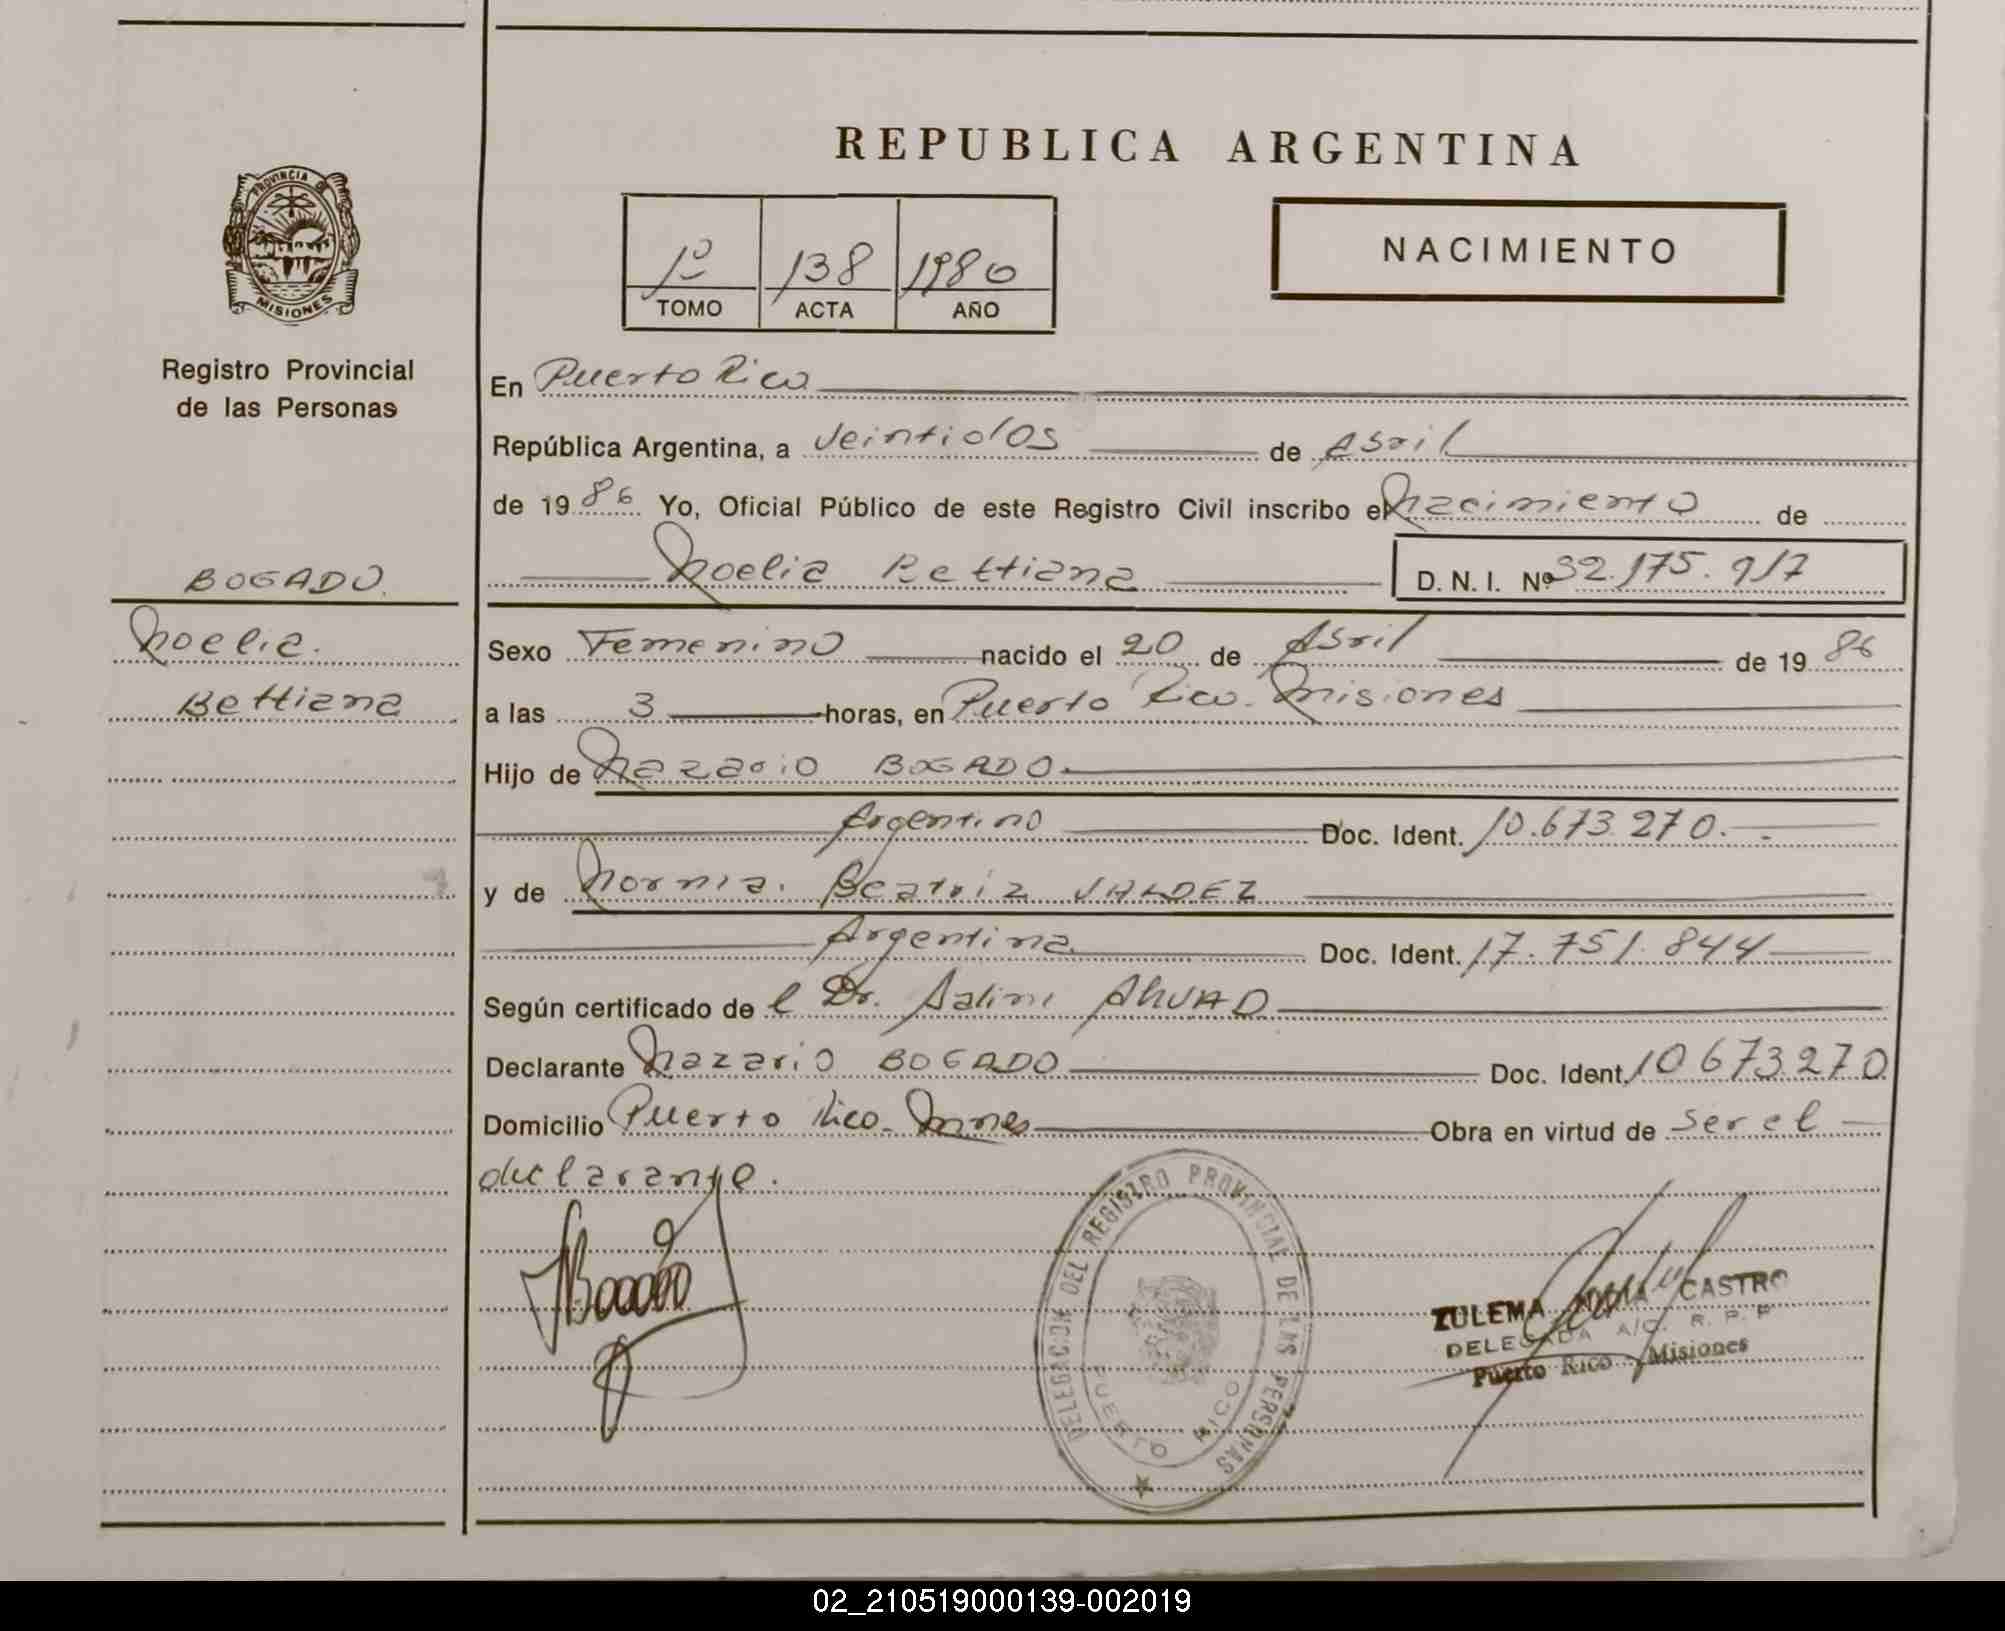 REPUBLICA ARGENTINA
PROVINCIA DE
MISIONES
Registro Provincial
de las Personas
1º 138 1986
TOMO ACTA AÑO
NACIMIENTO
En Puerto Rico
República Argentina, a veintidos de Abril
de 19 86 Yo, Oficial Público de este Registro Civil inscribo el Nacimiento de
Noelia Bettiana D. N. I. Nº 32.175.917
BOGADO
Noelia
Bettiana
Sexo Femenino nacido el 20 de Abril de 19 86
a las 3 horas, en Puerto Rico. Misiones
Hijo de Nazario BOGADO
Argentino Doc. Ident. 10.673.270.
y de Norma Beatriz VALDEZ
Argentina Doc. Ident. 17.751.844
Según certificado de l Dr. Salim AHUAD
Declarante Nazario BOGADO Doc. Ident. 10673270
Domicilio Puerto Rico - Mnes Obra en virtud de ser el
declarante.
DELEGACION DEL REGISTRO PROVINCIAL DE LAS PERSONAS
PUERTO RICO
ZULEMA CASTRO
DELEGADA A/C. R. P. P
Puerto Rico - Misiones
02_210519000139-002019